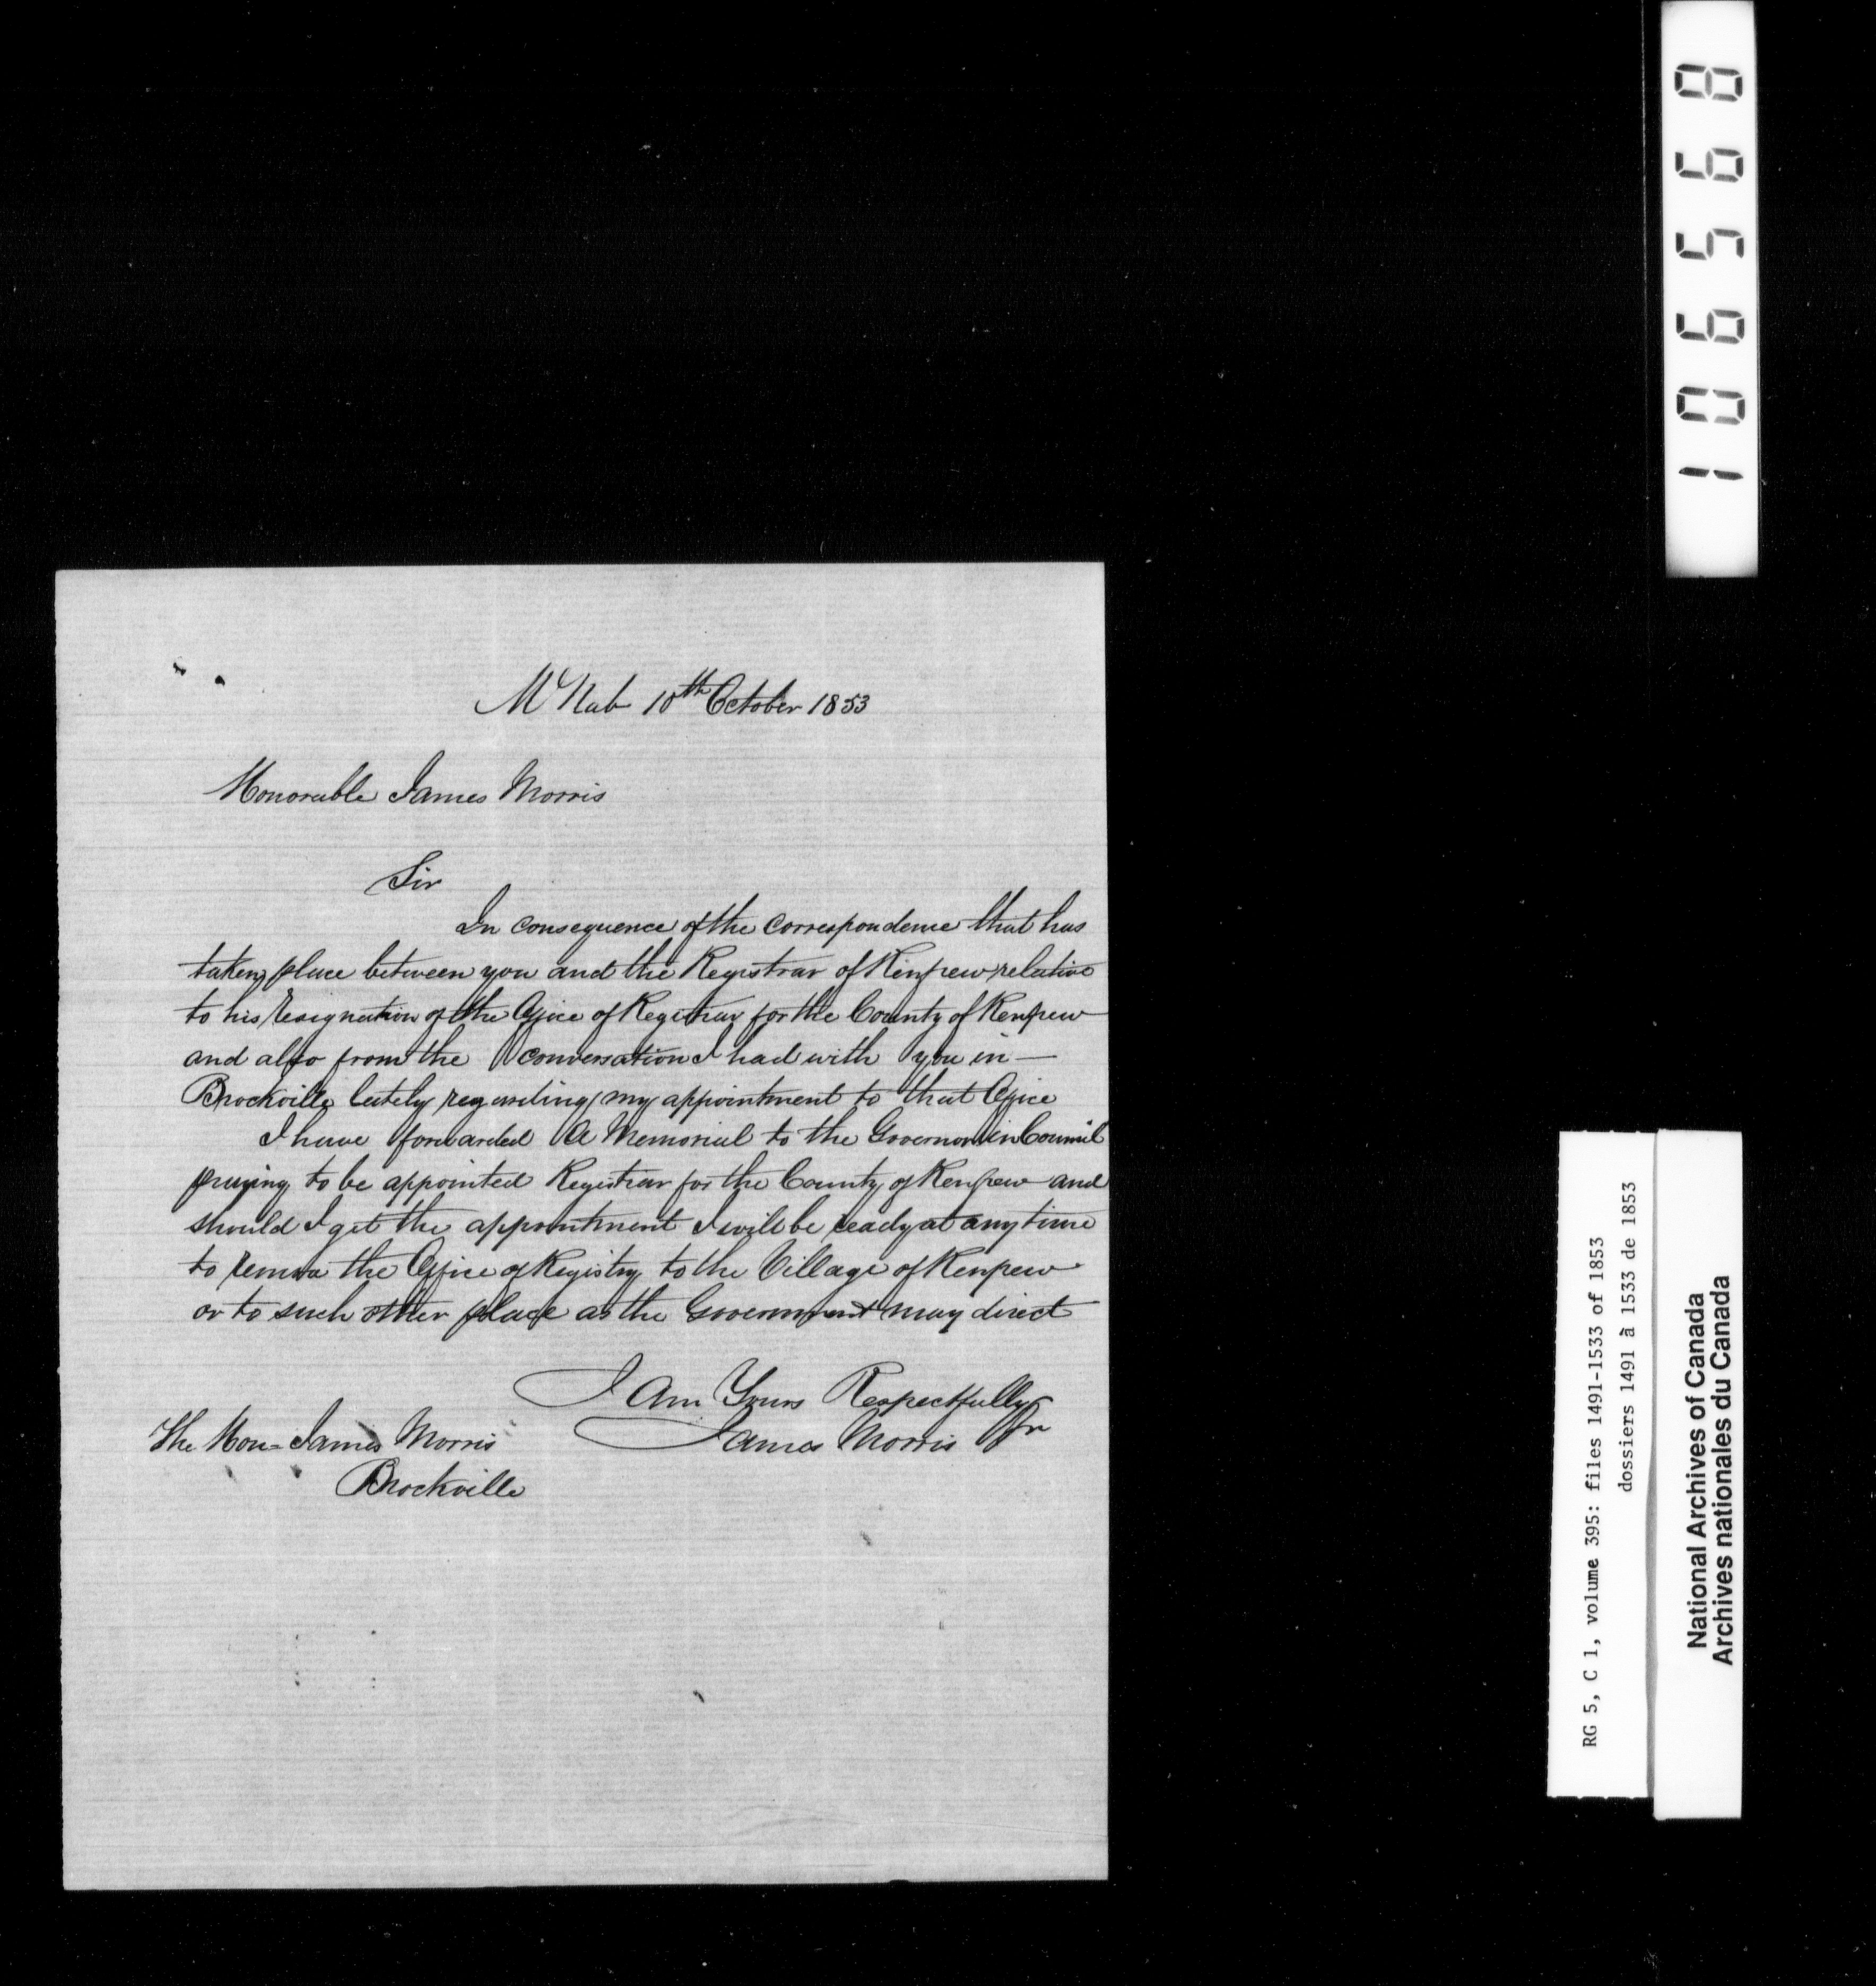 McNab 10th October 1853
Honorable James Morris
Sir
In consequence of the Correspondence that has
taken place between you and the Registrar of Renfrew relative
to his resignation of the Office of Registrar for the County of Renfrew
and also from the conversation I had with you in —
Brockville lately regarding my appointment to that Office
I have forwarded A Memorial to the Governor in Council
praying to be appointed Registrar for the County of Renfrew and
should I get the appointment I will be ready at any time
to remove the Office of Registry to the Village of Renfrew
or to such other place as the Government may direct
I Am Yours Respectfully
James Morris Jr
The Hon= James Morris
Brockville
106568
RG 5, C 1, volume 395: files 1491-1533 of 1853
dossiers 1491 à 1533 de 1853
National Archives of Canada
Archives nationales du Canada